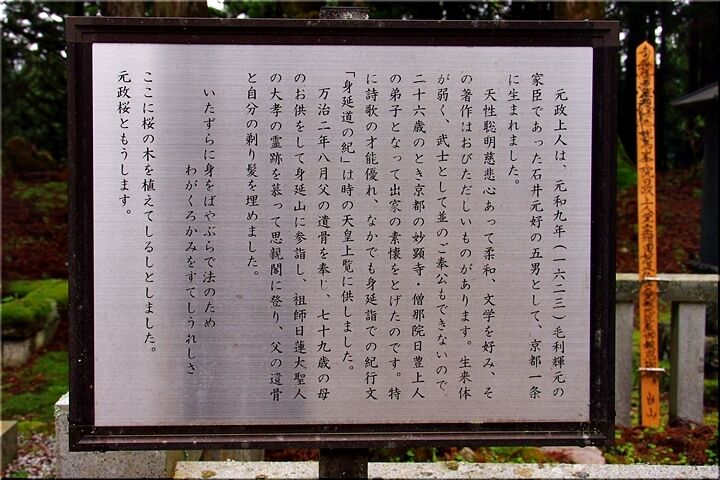 元政上人は、元和九年(一六二三)毛利輝元の
家臣であった石井元好の五男として、京都一条
に生まれました。
天性聡明慈悲心あって柔和、文学を好み、そ
の著作はおびただしいものがあります。生来体
が弱く、武士として並のご奉公もできないので、
二十六歳のとき京都の妙顕寺・僧那院日豊上人
の弟子となって出家の素懐をとげたのです。特
に詩歌の才能優れ、なかでも身延詣での紀行文
「身延道の紀」は時の天皇上覧に供しました。
万治二年八月父の遺骨を奉じ、七十九歳の母
のお供をして身延山に参詣し、祖師日蓮大聖人
の大孝の霊跡を慕って思親閣に登り、父の遺骨
と自分の剃り髪を埋めました。
いたずらに身をばやぶらで法のため
わがくろかみをすてしうれしさ
ここに桜の木を植えてしるしとしました。
元政桜ともうします。